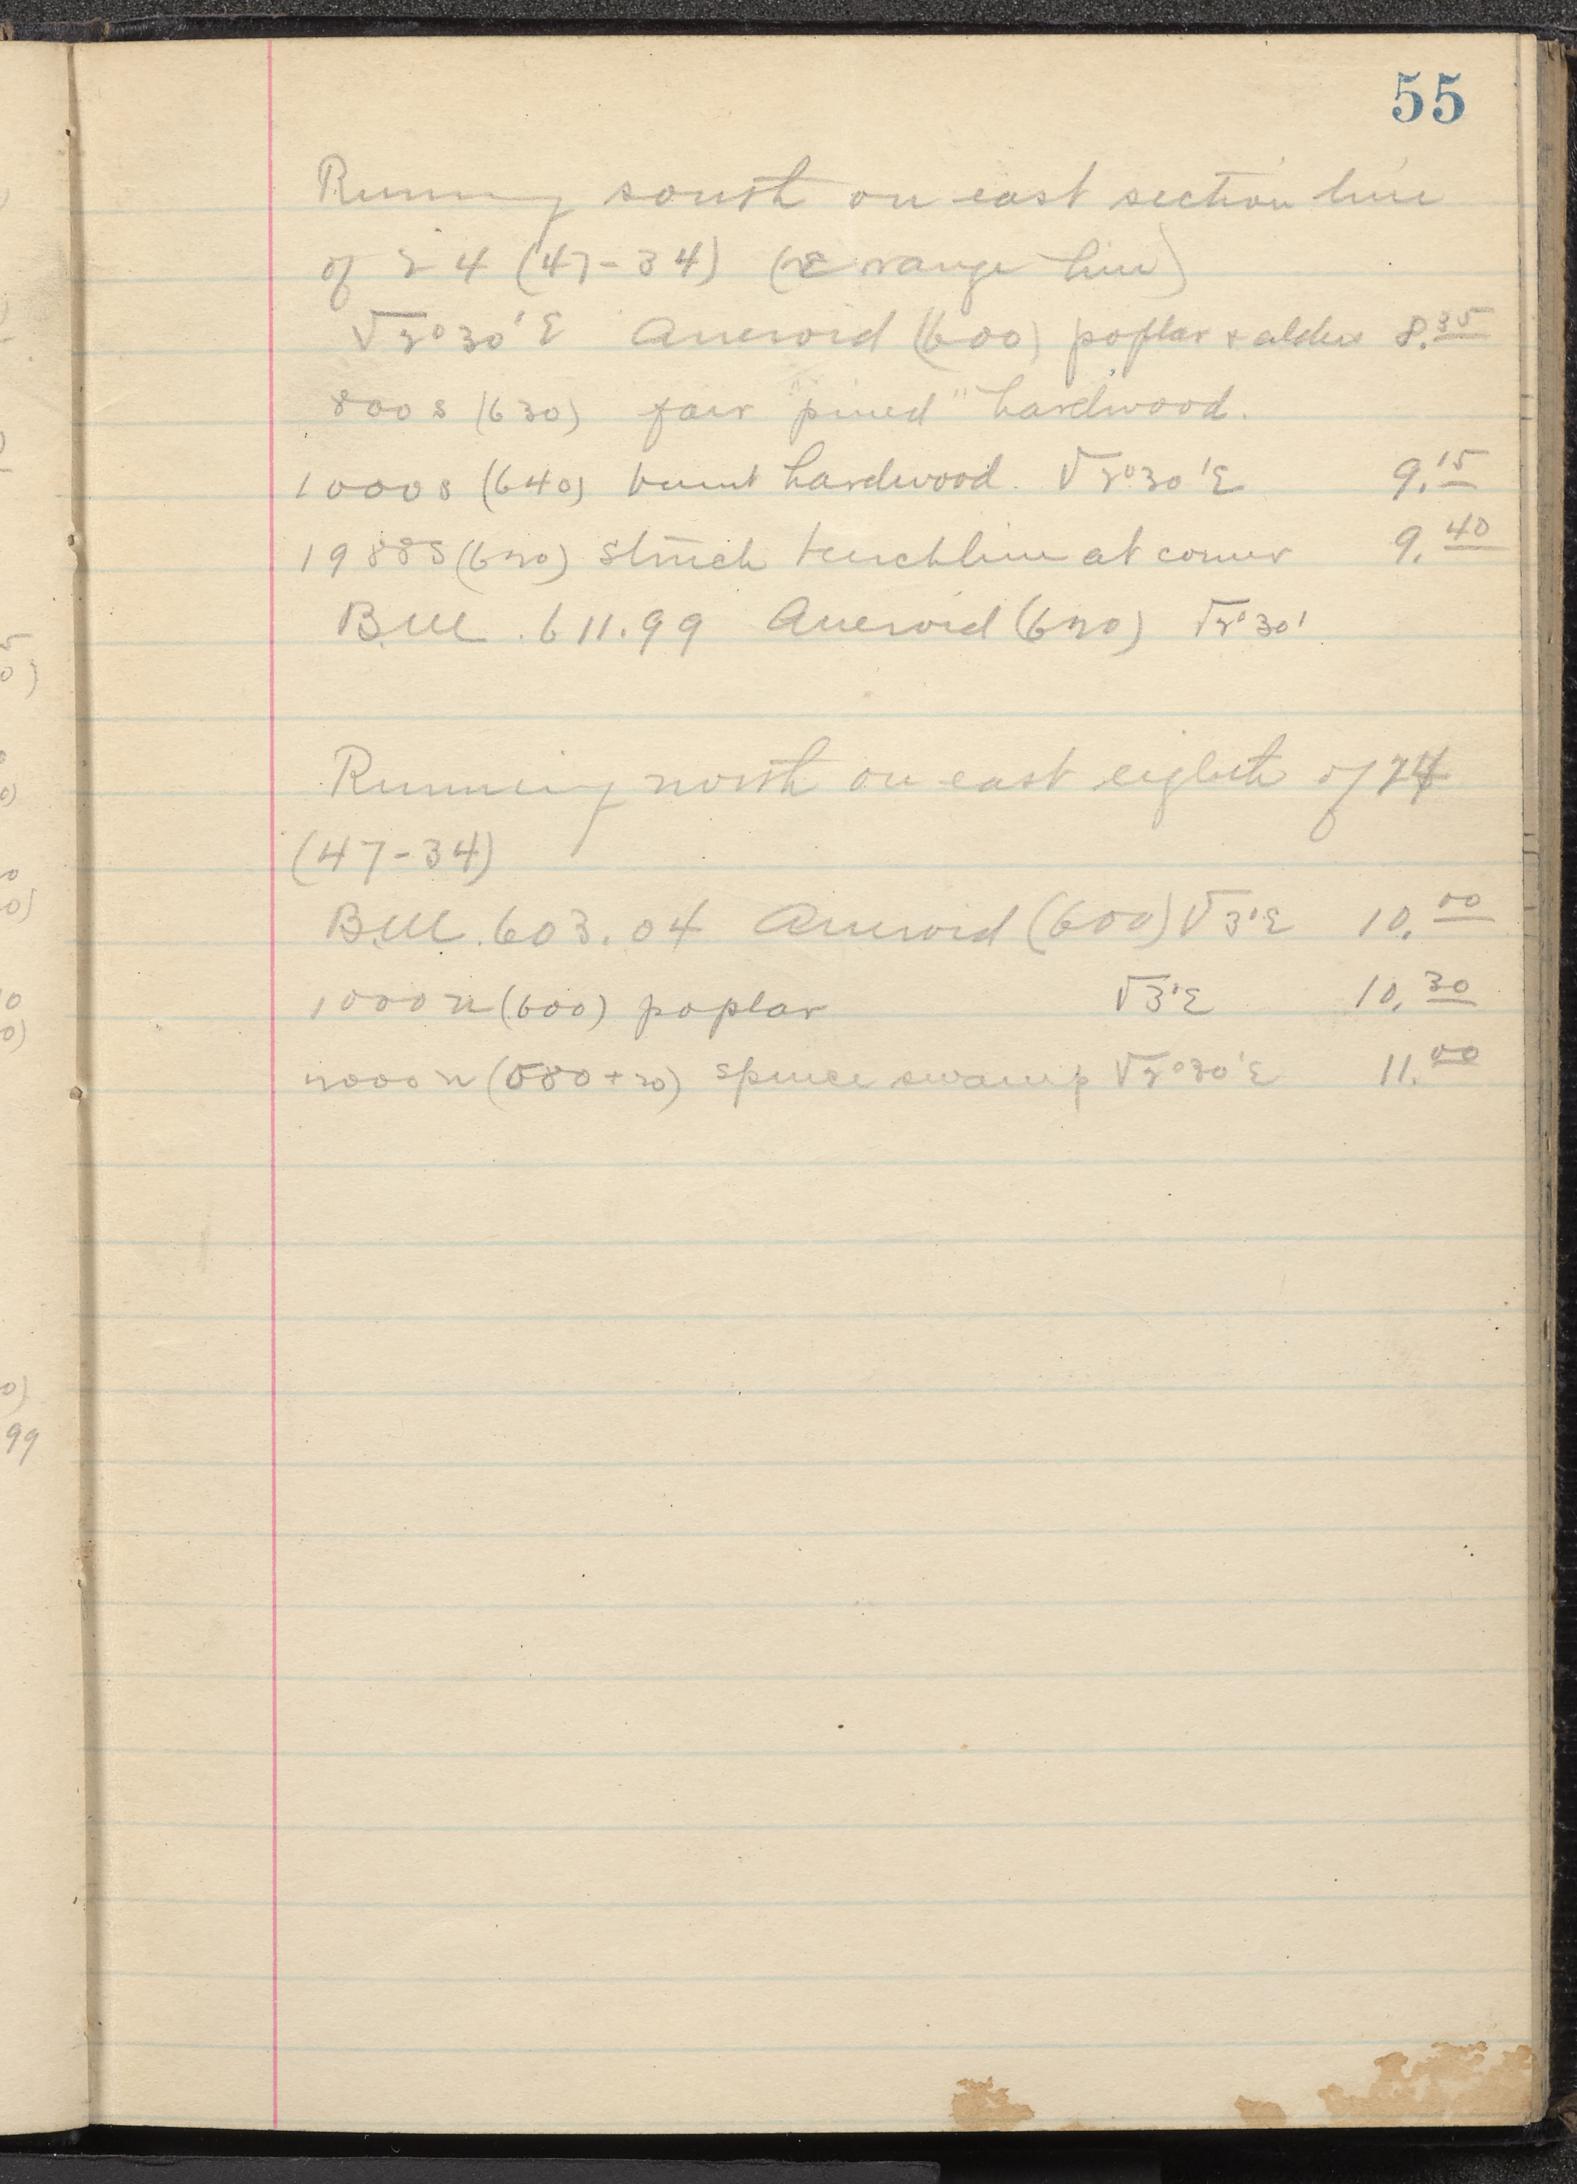 55
Running south on east section line
of 24 (47-34) (E range line)
V 2°30'E Aneroid (600) poplar & alder 8.35
800 S (630) fair "pined" hardwood.
1000 S (640) burnt hardwood. V 2°30'E 9.15
1988 S (620) struck benchline at corner 9.40
B.M. 611.99 Aneroid (620) V 2°30'
Running north on east eighth of 24
(47-34)
B.M. 603.04 Aneroid (600) V 3'E 10.00
1000 N (600) poplar V 3'E 10.30
2000 N (580+20) spruce swamp V 2°30'E 11.00
99